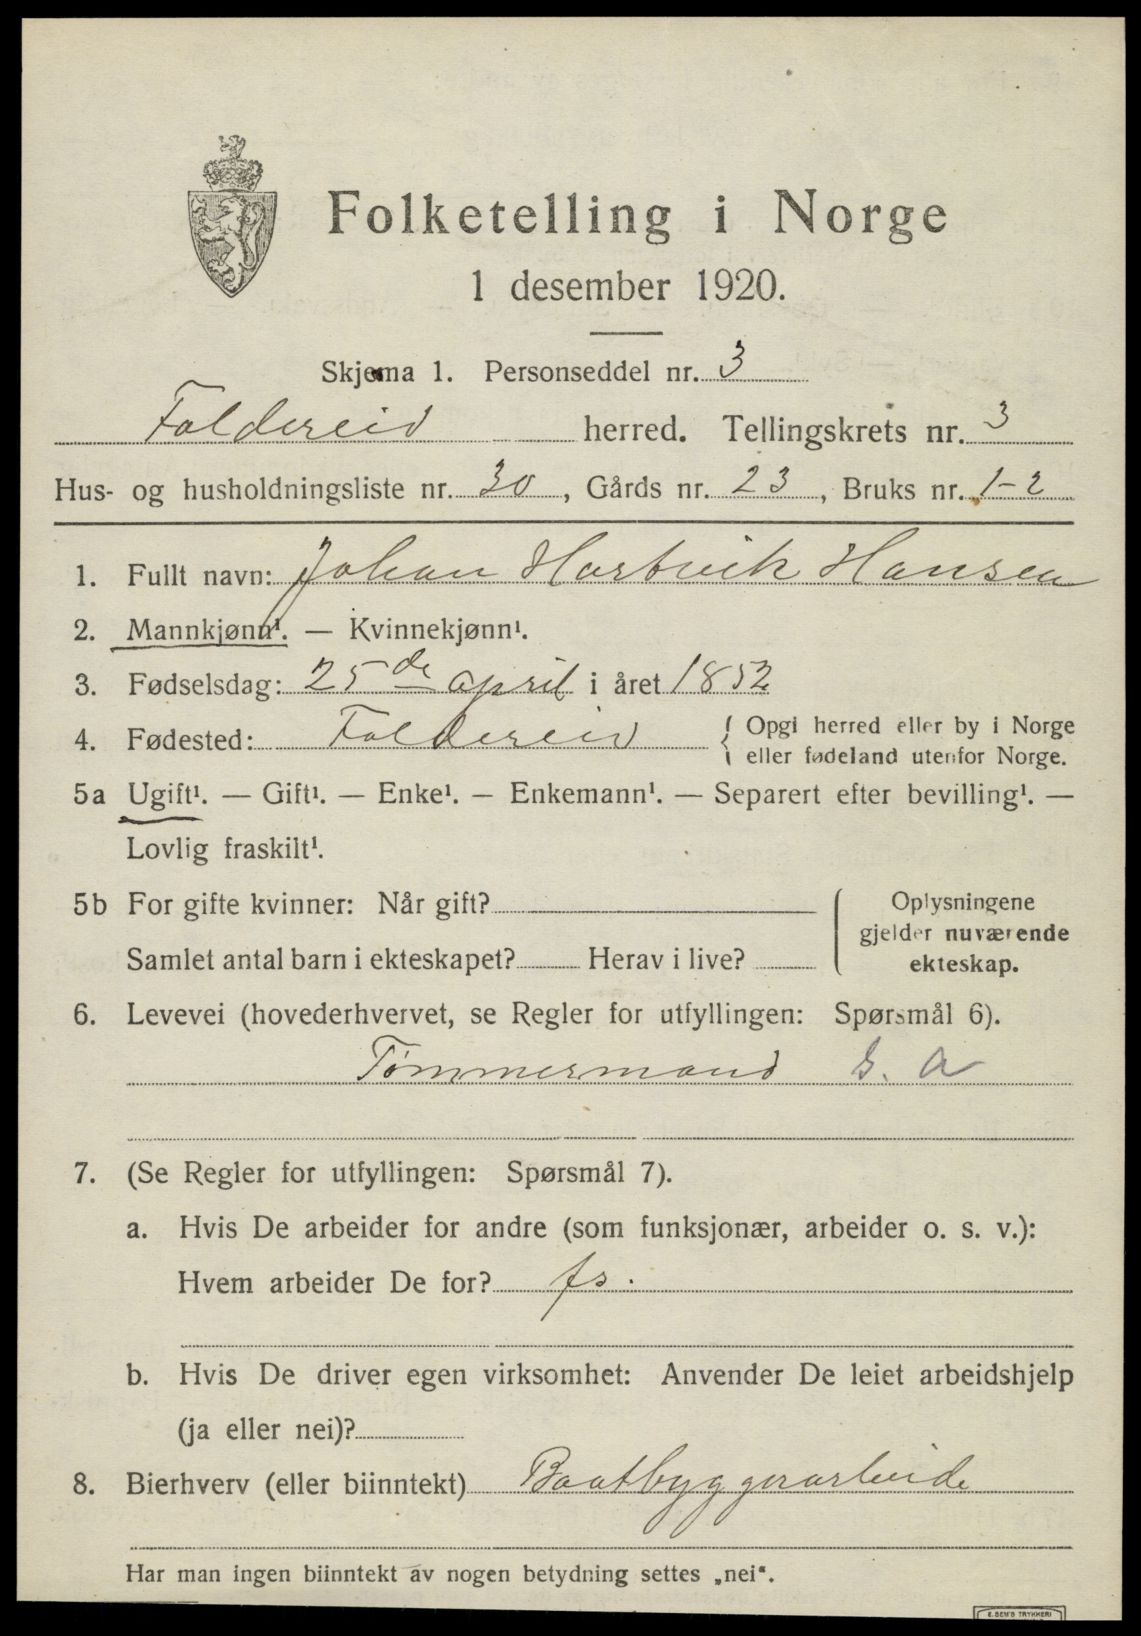 Folketelling i Norge
1 desember 1920.
Skjema 1. Personseddel nr. 3
Foldereid herred. Tellingskrets nr. 3
Hus- og husholdningsliste nr. 30, Gårds nr. 23, Bruks nr. 1-2
1. Fullt navn: Johan Hartvik Hansen
2. Mannkjønn¹. — Kvinnekjønn¹.
3. Fødselsdag: 25de april i året 1852
4. Fødested: Foldereid { Opgi herred eller by i Norge
eller fødeland utenfor Norge.
5a Ugift¹. — Gift¹. — Enke¹. — Enkemann¹. — Separert efter bevilling¹. —
Lovlig fraskilt¹.
5b For gifte kvinner: Når gift?
Samlet antal barn i ekteskapet? Herav i live?
Oplysningene
gjelder nuværende
ekteskap.
6. Levevei (hovederhvervet, se Regler for utfyllingen: Spørsmål 6).
Tømmermand G. A
7. (Se Regler for utfyllingen: Spørsmål 7).
a. Hvis De arbeider for andre (som funksjonær, arbeider o. s. v.):
Hvem arbeider De for? fs.
b. Hvis De driver egen virksomhet: Anvender De leiet arbeidshjelp
(ja eller nei)?
8. Bierhverv (eller biinntekt) Baatbyggerarbeide
Har man ingen biinntekt av nogen betydning settes „nei“.
E. SEM'S TRYKKERI